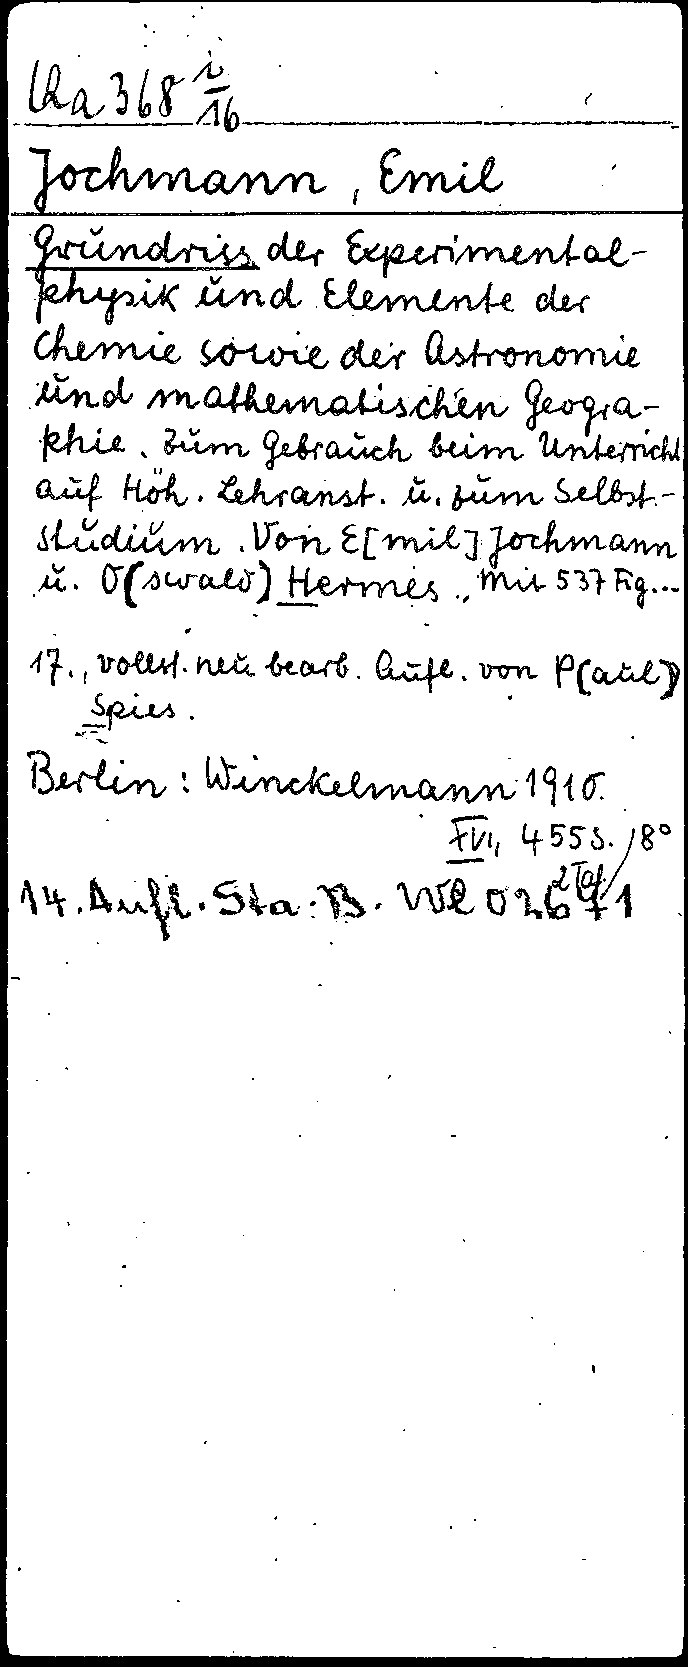 Ua 368 i/16
Jochmann, Emil
Grundriss der Experimental-
physik und Elemente der
Chemie sowie der Astronomie
und mathematischen Geogra-
phie. Zum Gebrauch beim Unterricht
auf Höh. Lehranst. u. zum Selbst-
studium. Von E[mil] Jochmann
u. O(swald) Hermes. Mit 537 Fig...
17., vollst. neu bearb. Aufl. von P(aul)
Spies.
Berlin: Winckelmann 1910.
XVI, 455 S. 8°
2 Taf.
14. Aufl. Sta. B. Wl 02671